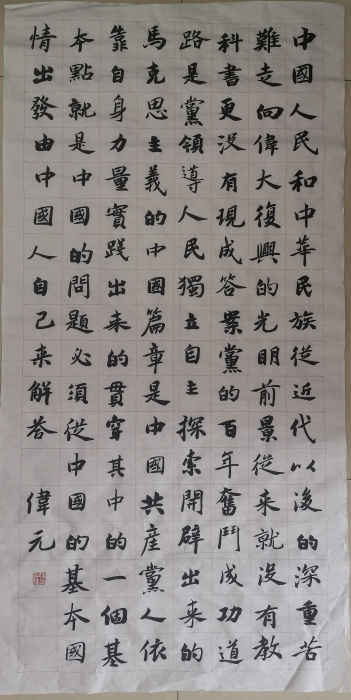 中國人民和中華民族從近代以後的深重苦
難走向偉大復興的光明前景從來就沒有教
科書更沒有現成答案黨的百年奮鬥成功道
路是黨領導人民獨立自主探索開辟出來的
馬克思主義的中國篇章是中國共產黨人依
靠自身力量實踐出來的貫穿其中的一個基
本點就是中國的問題必須從中國的基本國
情出發由中國人自己來解答 偉元